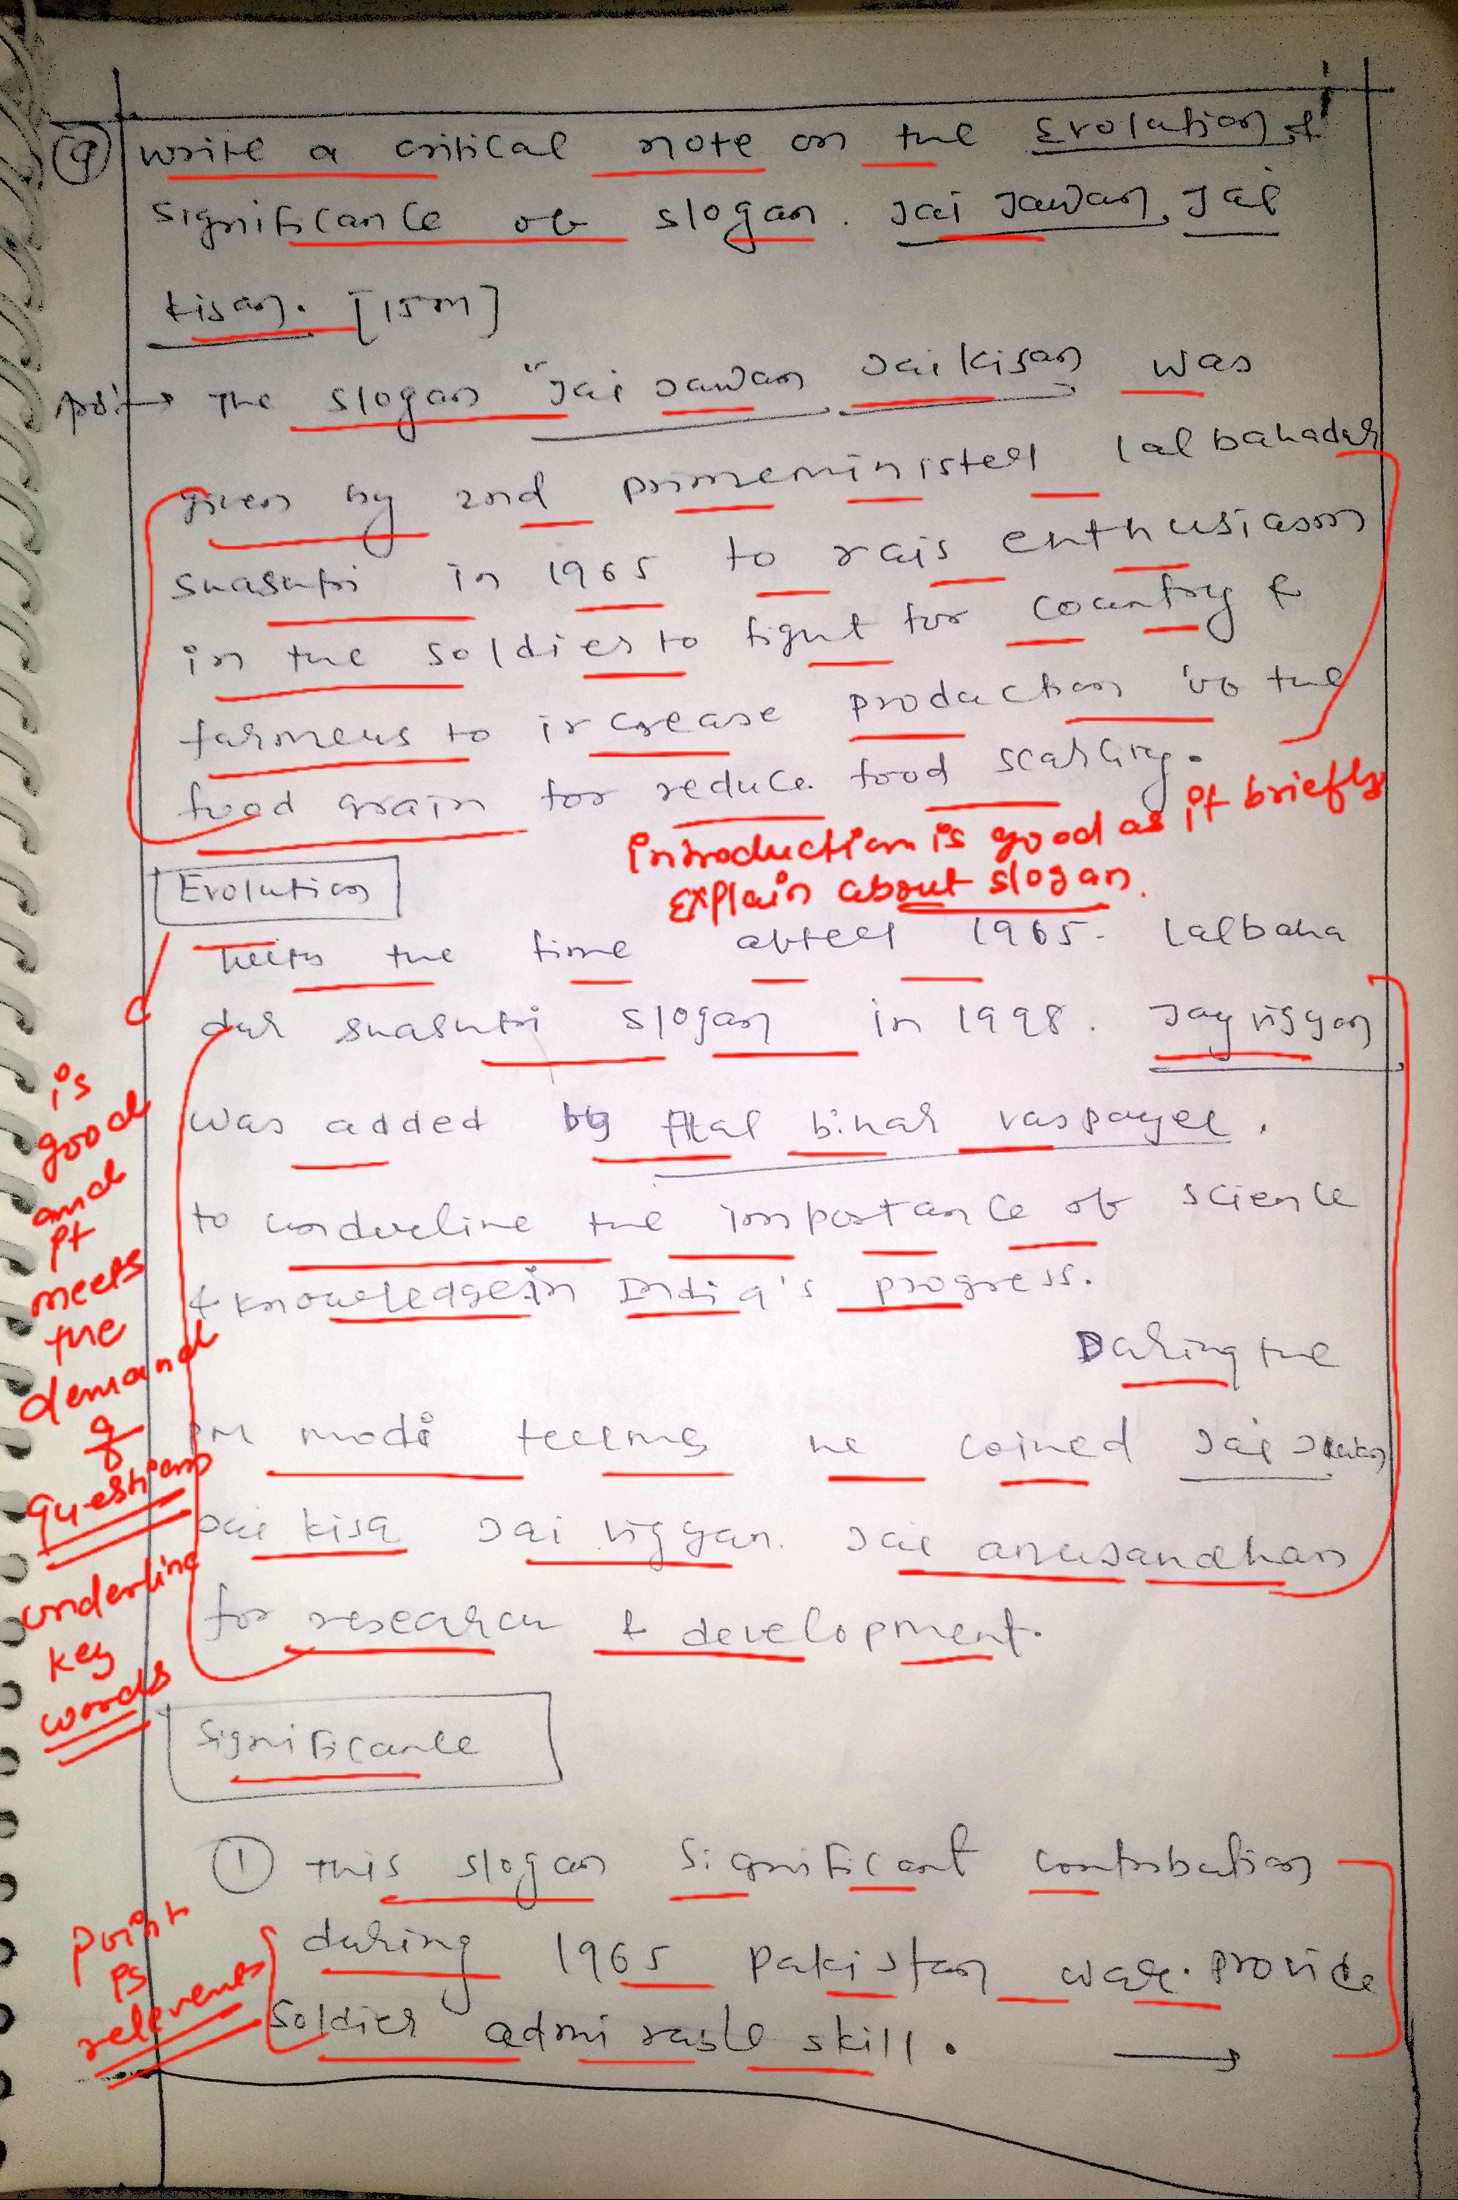 Q write a critical note on the Evolution &
significance of slogan. Jai Jawan, Jai
kisan. [15m]
The slogan "Jai Jawan Jai kisan was
given by 2nd primeminister lal bahadur
shashtri in 1965 to rais enthusiasm
in the soldiers to fight for country &
farmers to increase production in the
food grain for reduce food scarcity.
introduction is good as it briefly
explain about slogan.
Evolution
With the time after 1965. Lalbaha
dur shashtri slogan in 1998. Jay vigyan
was added by Atal bihar vaspayee.
to underline the importance of science
& knowledge in India's progress.
is
good
and
it
meets
the
demand
of
question
underline
key
words
During the
PM modi terms he coined Jai Jawan
Jai kisa Jai vigyan. Jai anusandhan
for research & development.
Significance
① This slogan significant contribution
during 1965 Pakistan war. provide
soldier admirable skill. →
point
is
relevents